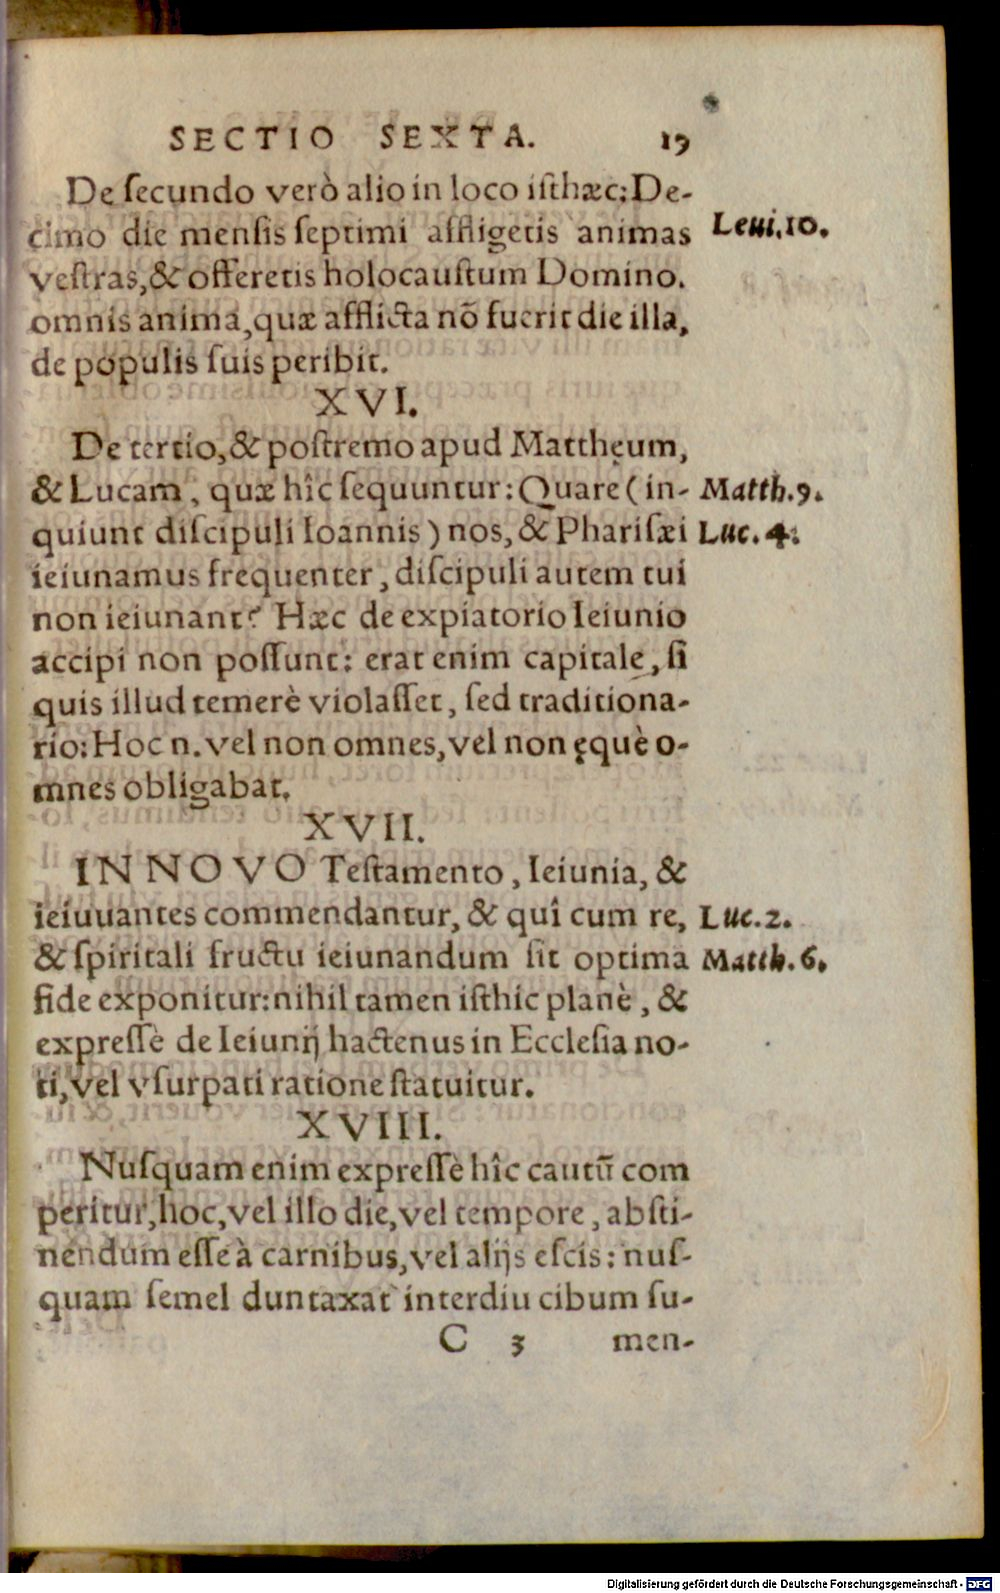 SECTIO SEXTA. 19
De ſecundo verò alio in loco iſthæc: De-
cimo die menſis ſeptimi affligetis animas Leui.10.
veſtras, & offeretis holocauſtum Domino.
omnis anima, quæ afflicta nõ fuerit die illa,
de populis ſuis peribit.
XVI.
De tertio, & poſtremo apud Matthęum,
& Lucam, quæ hîc ſequuntur: Quare (in- Matth.9.
quiunt diſcipuli Ioannis) nos, & Phariſæi Luc.4.
ieiunamus frequenter, diſcipuli autem tui
non ieiunant? Hæc de expiatorio Ieiunio
accipi non poſſunt: erat enim capitale, ſi
quis illud temerè violaſſet, ſed traditiona-
rio: Hoc n. vel non omnes, vel non ęquè o-
mnes obligabat.
XVII.
IN NOVO Teſtamento, Ieiunia, &
ieiuuantes commendantur, & quî cum re, Luc.2.
& ſpiritali fructu ieiunandum ſit optima Matth.6.
fide exponitur: nihil tamen iſthic planè, &
expreſſè de Ieiunij hactenus in Eccleſia no-
ti, vel vſurpati ratione ſtatuitur.
XVIII.
Nuſquam enim expreſſè hîc cautũ com
peritur, hoc, vel illo die, vel tempore, abſti-
nendum eſſe à carnibus, vel alijs eſcis: nuſ-
quam ſemel duntaxat interdiu cibum ſu-
C 3 men-
Digitalisierung gefördert durch die Deutsche Forschungsgemeinschaft - DFG